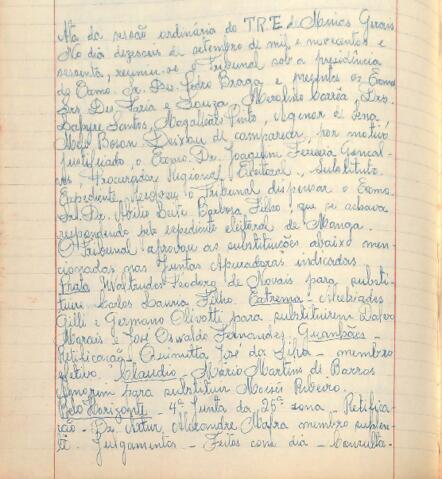 Ata da sessão ordinária do TRE de Minas Gerais
No dia dezesseis de setembro de mil e novecentos e
sessenta, reuniu-se o Tribunal sob a presidência
do Exmo. Sr. Des. Pedro Braga e presentes os Exmos.
Srs. Des. Faria e Souza, Merolino Corrêa, Drs.
Dapieve Santos, Magalhães Pinto, Agenor de Sena,
Melo Boson. Deixou de comparecer, por motivo
justificado, o Exmo. Dr. Joaquim Ferreira Gonçal-
ves, Procurador Regional Eleitoral, substituto.
Expediente. Resolveu o Tribunal dispensar o Exmo.
Sr. Dr. Abílio Leite Barbosa Filho, que se achava
respondendo pelo expediente eleitoral de Manga.
O Tribunal aprovou as substituições abaixo men-
cionadas nas Juntas Apuradoras indicadas.
Prata Teodoro de Novais para substi-
tuir Carlos Filho. Extrema - Alcebíades
Gilli e Germano Olivotti para substituirem
Morais e José Oswaldo Fernandes. Guanhães -
Retificação - Quimitta José da Silva - membro
efetivo. Claudio - Mário Martins de Barros
Amorim para substituir Moisés Ribeiro.
Belo Horizonte - 4ª Junta da 25ª zona - Retifica-
ção - Dr. Artur Alexandre Mafra membro suplen-
te. Julgamentos - Feitos com dia - Consulta-